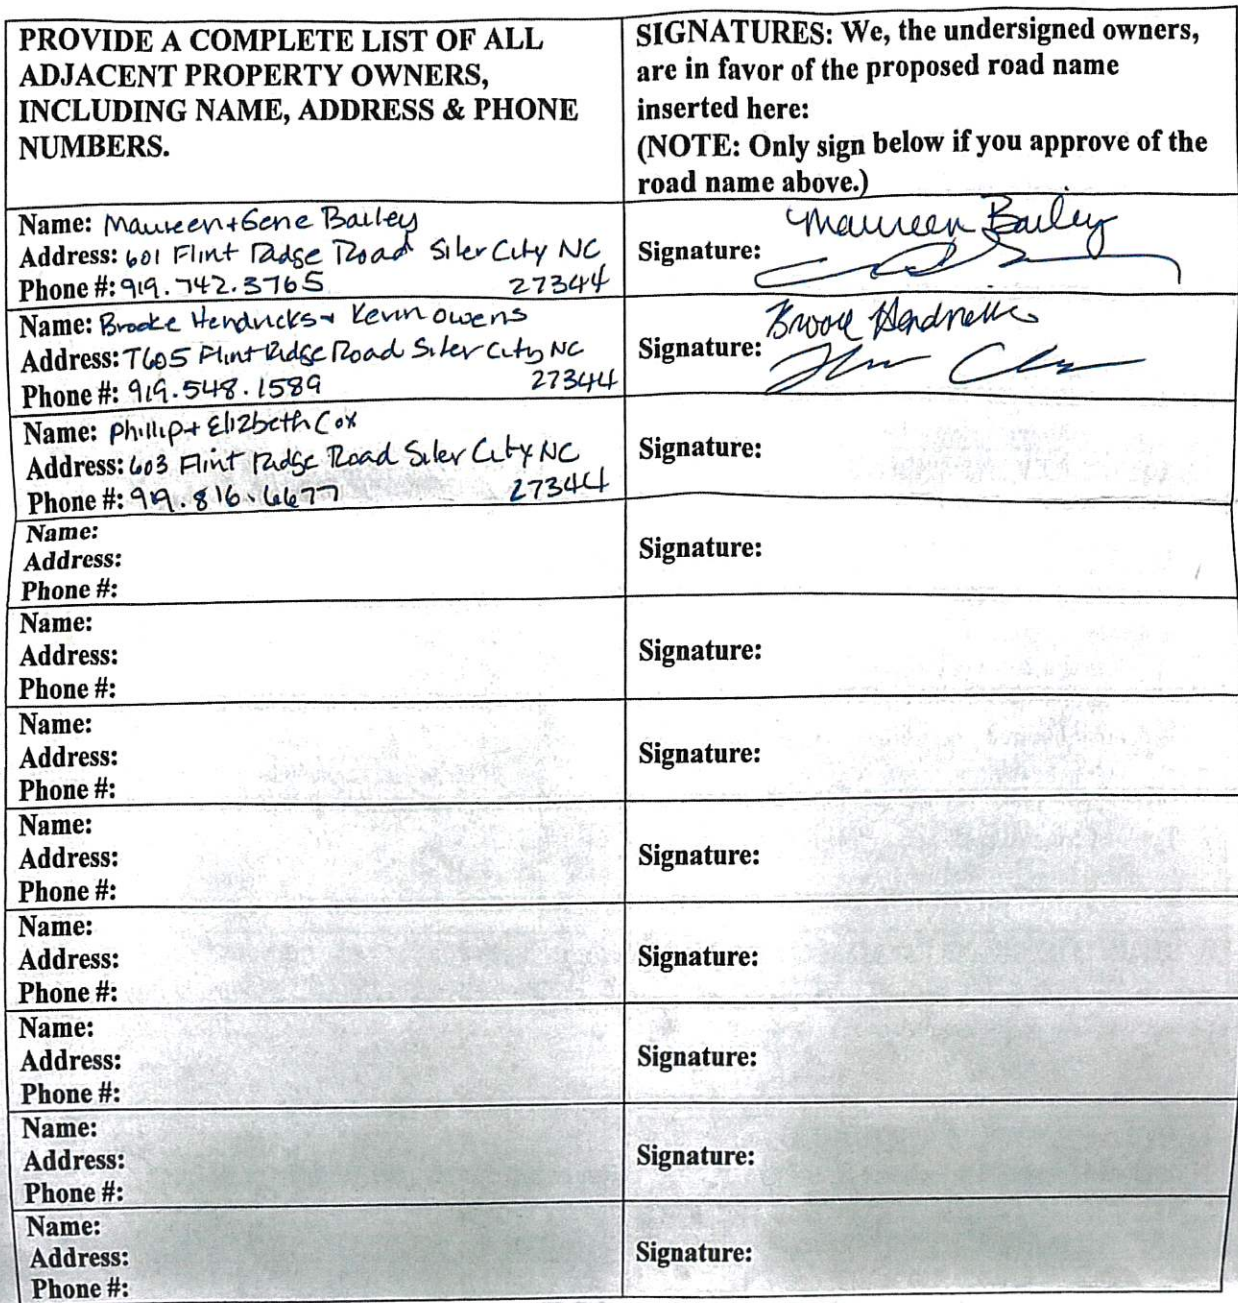 PROVIDE A COMPLETE LIST OF ALL
ADJACENT PROPERTY OWNERS,
INCLUDING NAME, ADDRESS & PHONE
NUMBERS.
SIGNATURES: We, the undersigned owners,
are in favor of the proposed road name
inserted here:
(NOTE: Only sign below if you approve of the
road name above.)
Name: Maureen + Gene Bailey
Address: 601 Flint Ridge Road Siler City NC
Phone #: 919.742.3765 27344
Signature: Maureen Bailey
Name: Brooke Hendricks + Kevin Owens
Address: 7605 Flint Ridge Road Siler City NC
Phone #: 919.548.1589 27344
Signature: Brooke Hendricks
Name: Phillip + Elizbeth Cox
Address: 603 Flint Ridge Road Siler City NC
Phone #: 919.816.6677 27344
Signature:
Name:
Address:
Phone #:
Signature:
Name:
Address:
Phone #:
Signature:
Name:
Address:
Phone #:
Signature:
Name:
Address:
Phone #:
Signature:
Name:
Address:
Phone #:
Signature:
Name:
Address:
Phone #:
Signature:
Name:
Address:
Phone #:
Signature:
Name:
Address:
Phone #:
Signature: